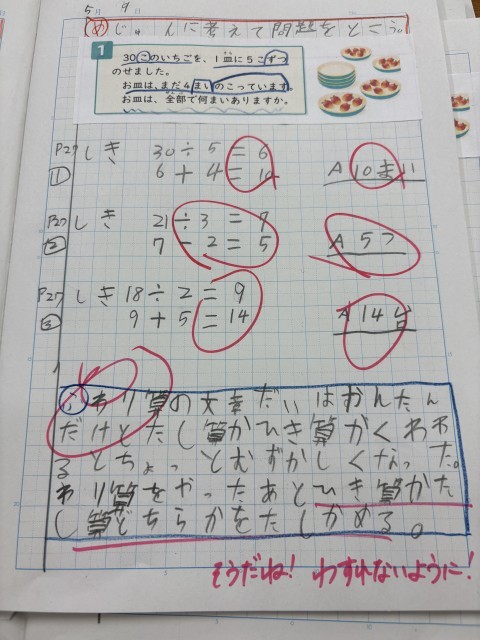 5月 9日
め じゅんに考えて問題をとこう。
1
30このいちごを、1皿に5こずつ
のせました。
お皿は、まだ4まいのこっています。
お皿は、全部で何まいありますか。
P27 しき 30÷5=6
① 6+4=10 A 10まい
P27 しき 21÷3=7
② 7-2=5 A 5つ
P27 しき 18÷2=9
③ 9+5=14 A 14台
ふ わり算の文章だいはかんたん
だけどたし算かひき算がくわわ
るとちょっとむずかしくなった。
わり算をやったあとひき算かた
し算どちらかをたしかめる。
そうだね! わすれないように!